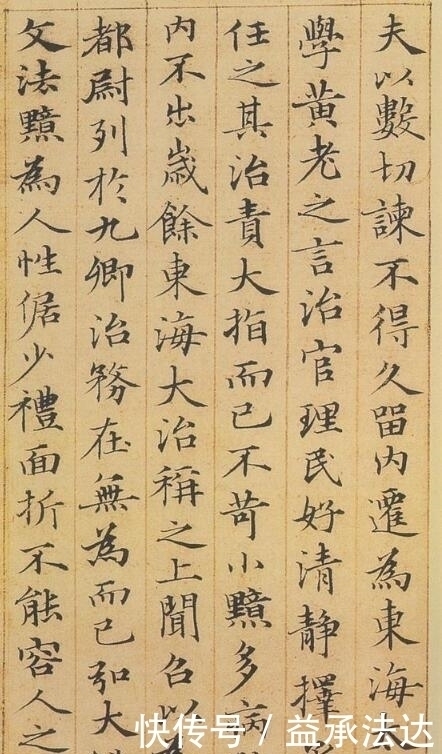 夫以數切諫不得久留内遷為東海
學黄老之言治官理民好清静擇
任之其治責大指而已不苛小黯多病
内不出歲餘東海大治稱之上聞召以
都尉列於九卿治務在無為而已弘大
文法黯為人性倨少禮面折不能容人之
快传号/益承法达